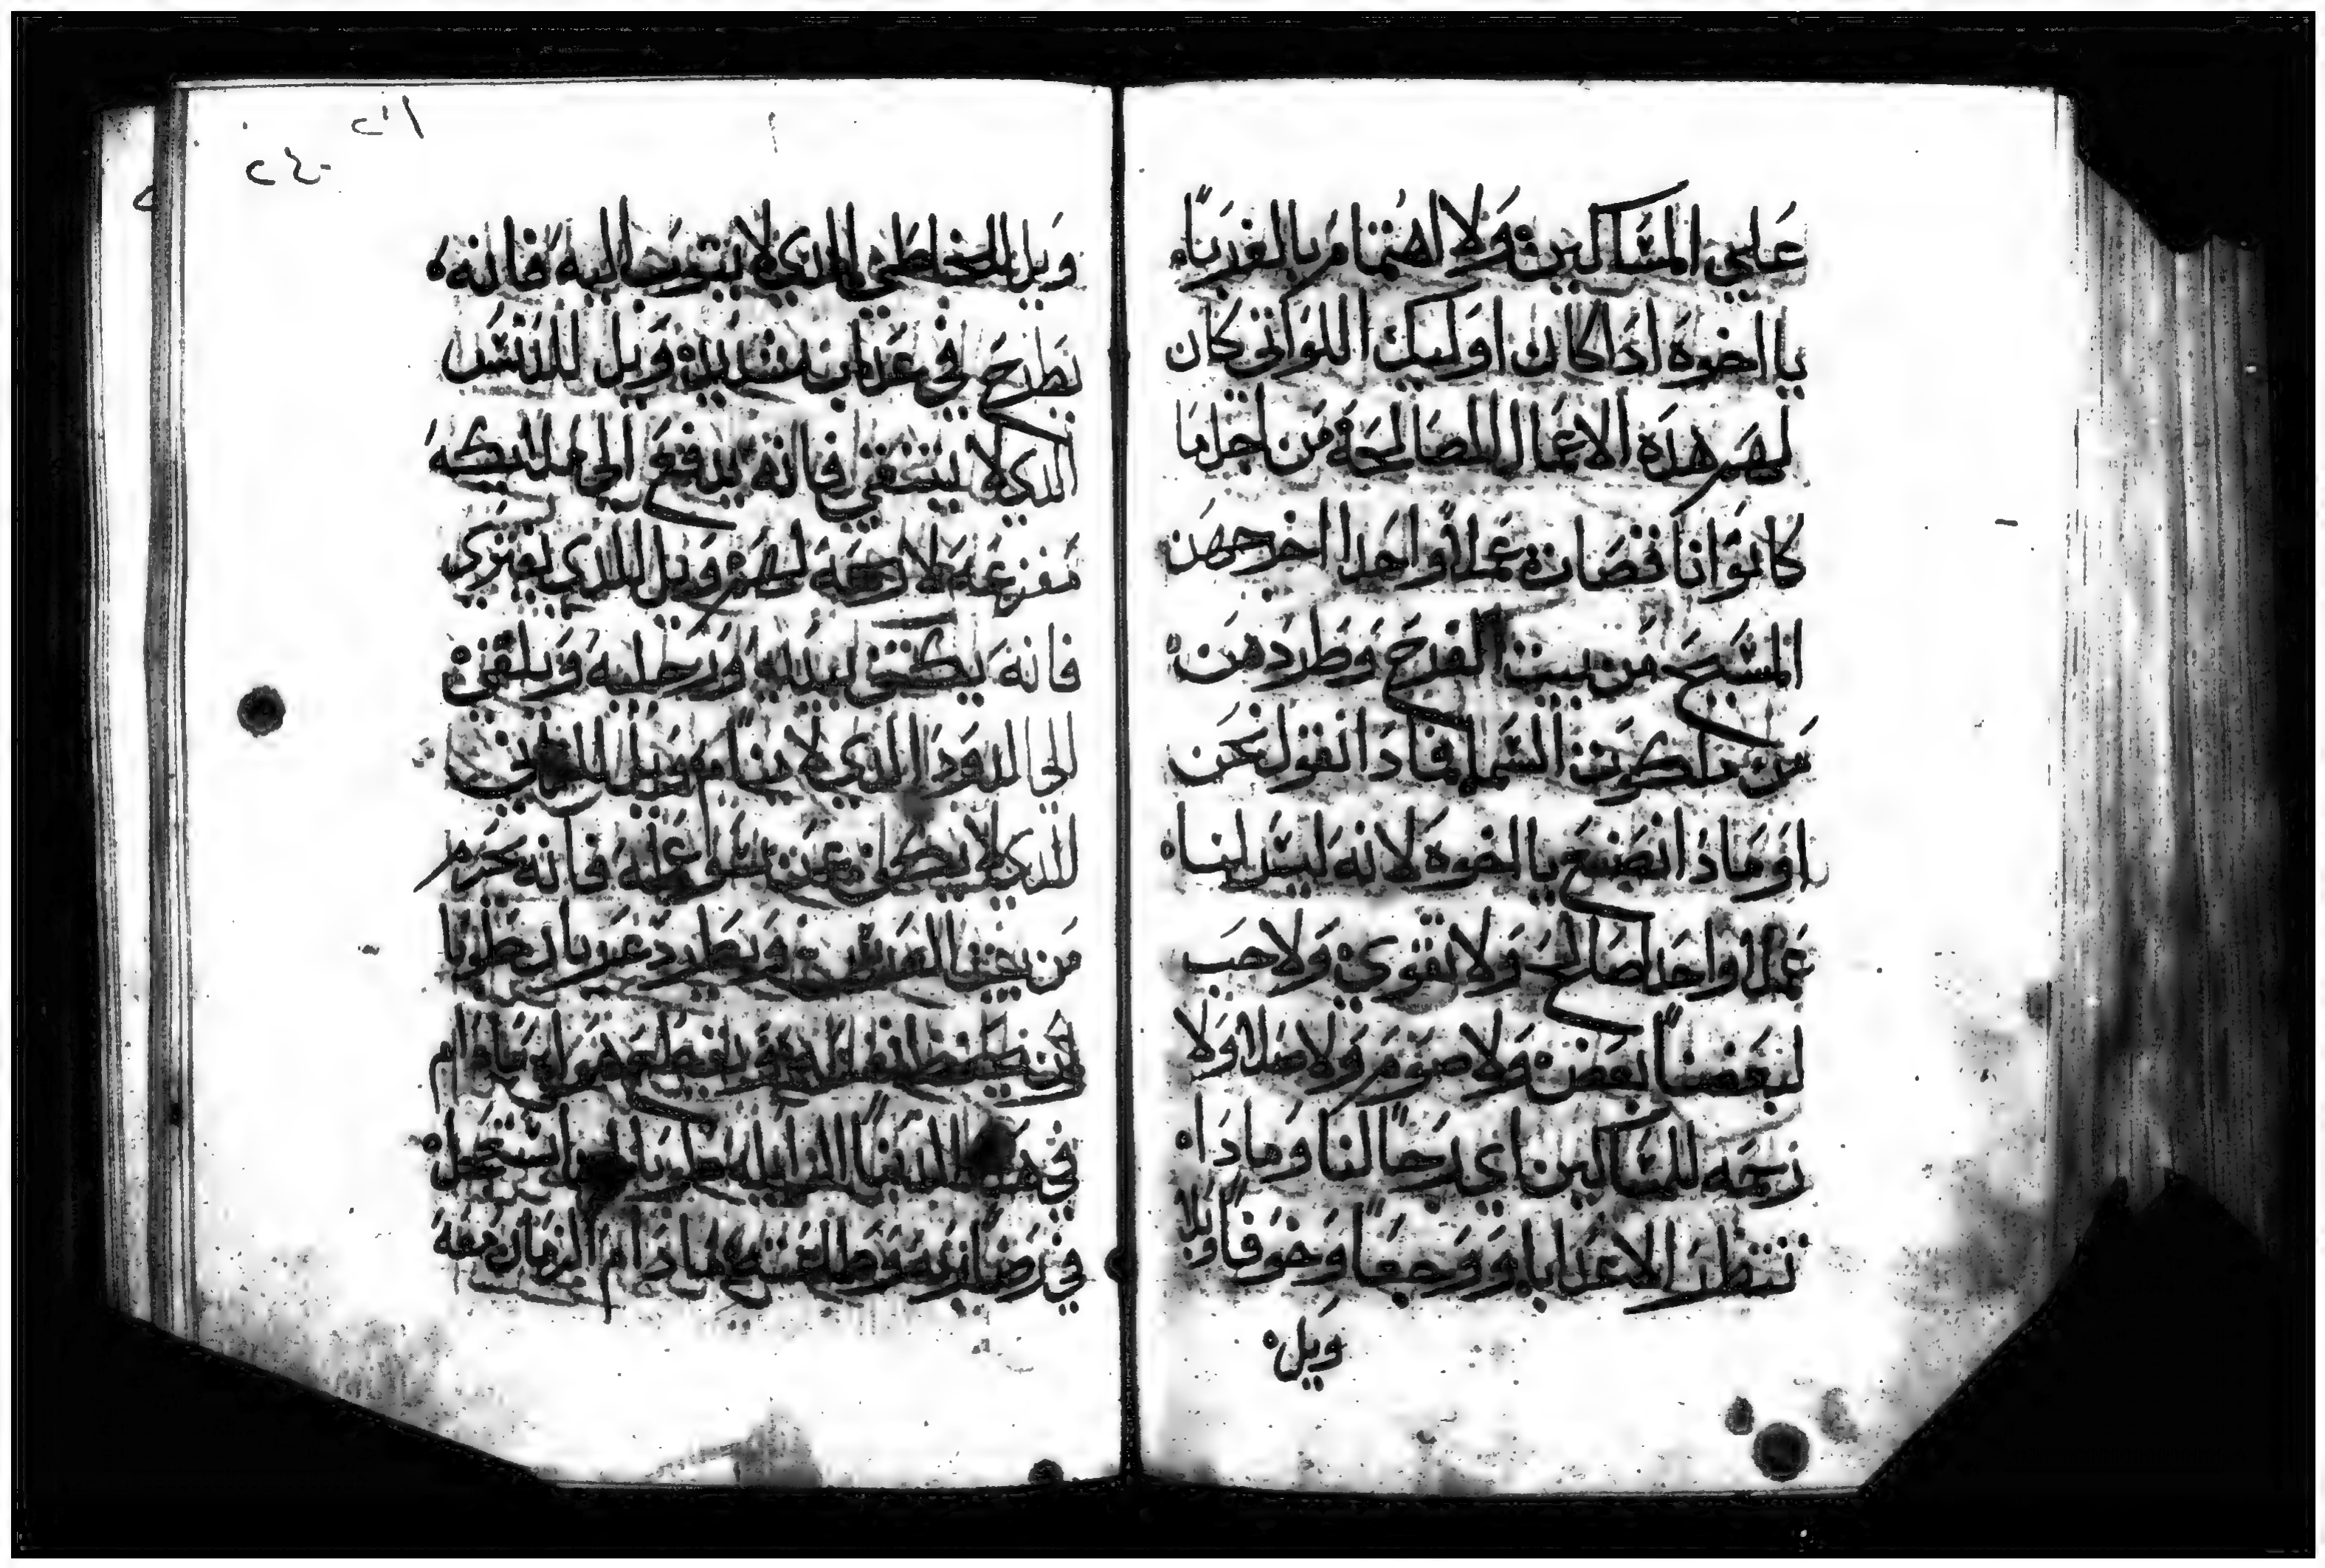 علي المساكين ولا اهتمام بالغربا
يا اخوه اذا كان اوليك اللواتي كان
لهم هذه الاعمال الصالحة من اجل ما
كانوا ناقصات عملا واحدا اخرجهن
المسيح من بيت الفرح وطردهن
من ملكوت السما فماذا نقول نحن
او ماذا نصنع يا اخوه لانه ليس لنا
عملا واحدا صالح ولا تقوي ولا حب
لبعضنا بعض ولا صوم ولا صلاه ولا
رحمه للمساكين اي رجا لنا وماذا
ننتظر الا عدابا ووجعا وخوفا وبلا
ويل
ويل للخاطي الذي لا يتوب حاليه فانه
يطرح في عذاب شديد ويل للدنس
الذي لا يتنقي فانه يدفع الي ملايكه
مفزعه لا رحمه لهم ويل للذي يفتري
فانه يكتف ليديه ورجليه ويلقي
الي الدود الذي لا ينام ويل للزاني
للذي لا يبطل عن عمله فانه يحرم
من بيعتنا المقدسه ويطرد عريان طوبا
لمن يحفظ نفسه مادام
في هذه الدنيا الزايله طوبا لمن استعجل
في رضا ربه وطاعته مادام الزمان معه